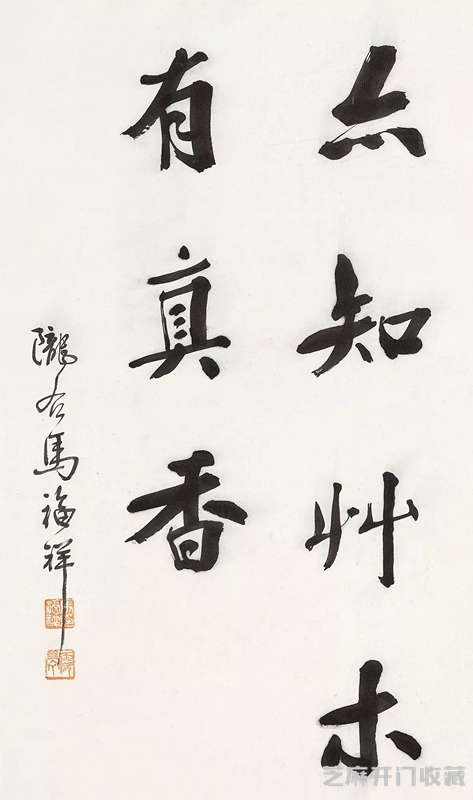 亦知艸木
有真香
隴右馬福祥
芝麻开门收藏